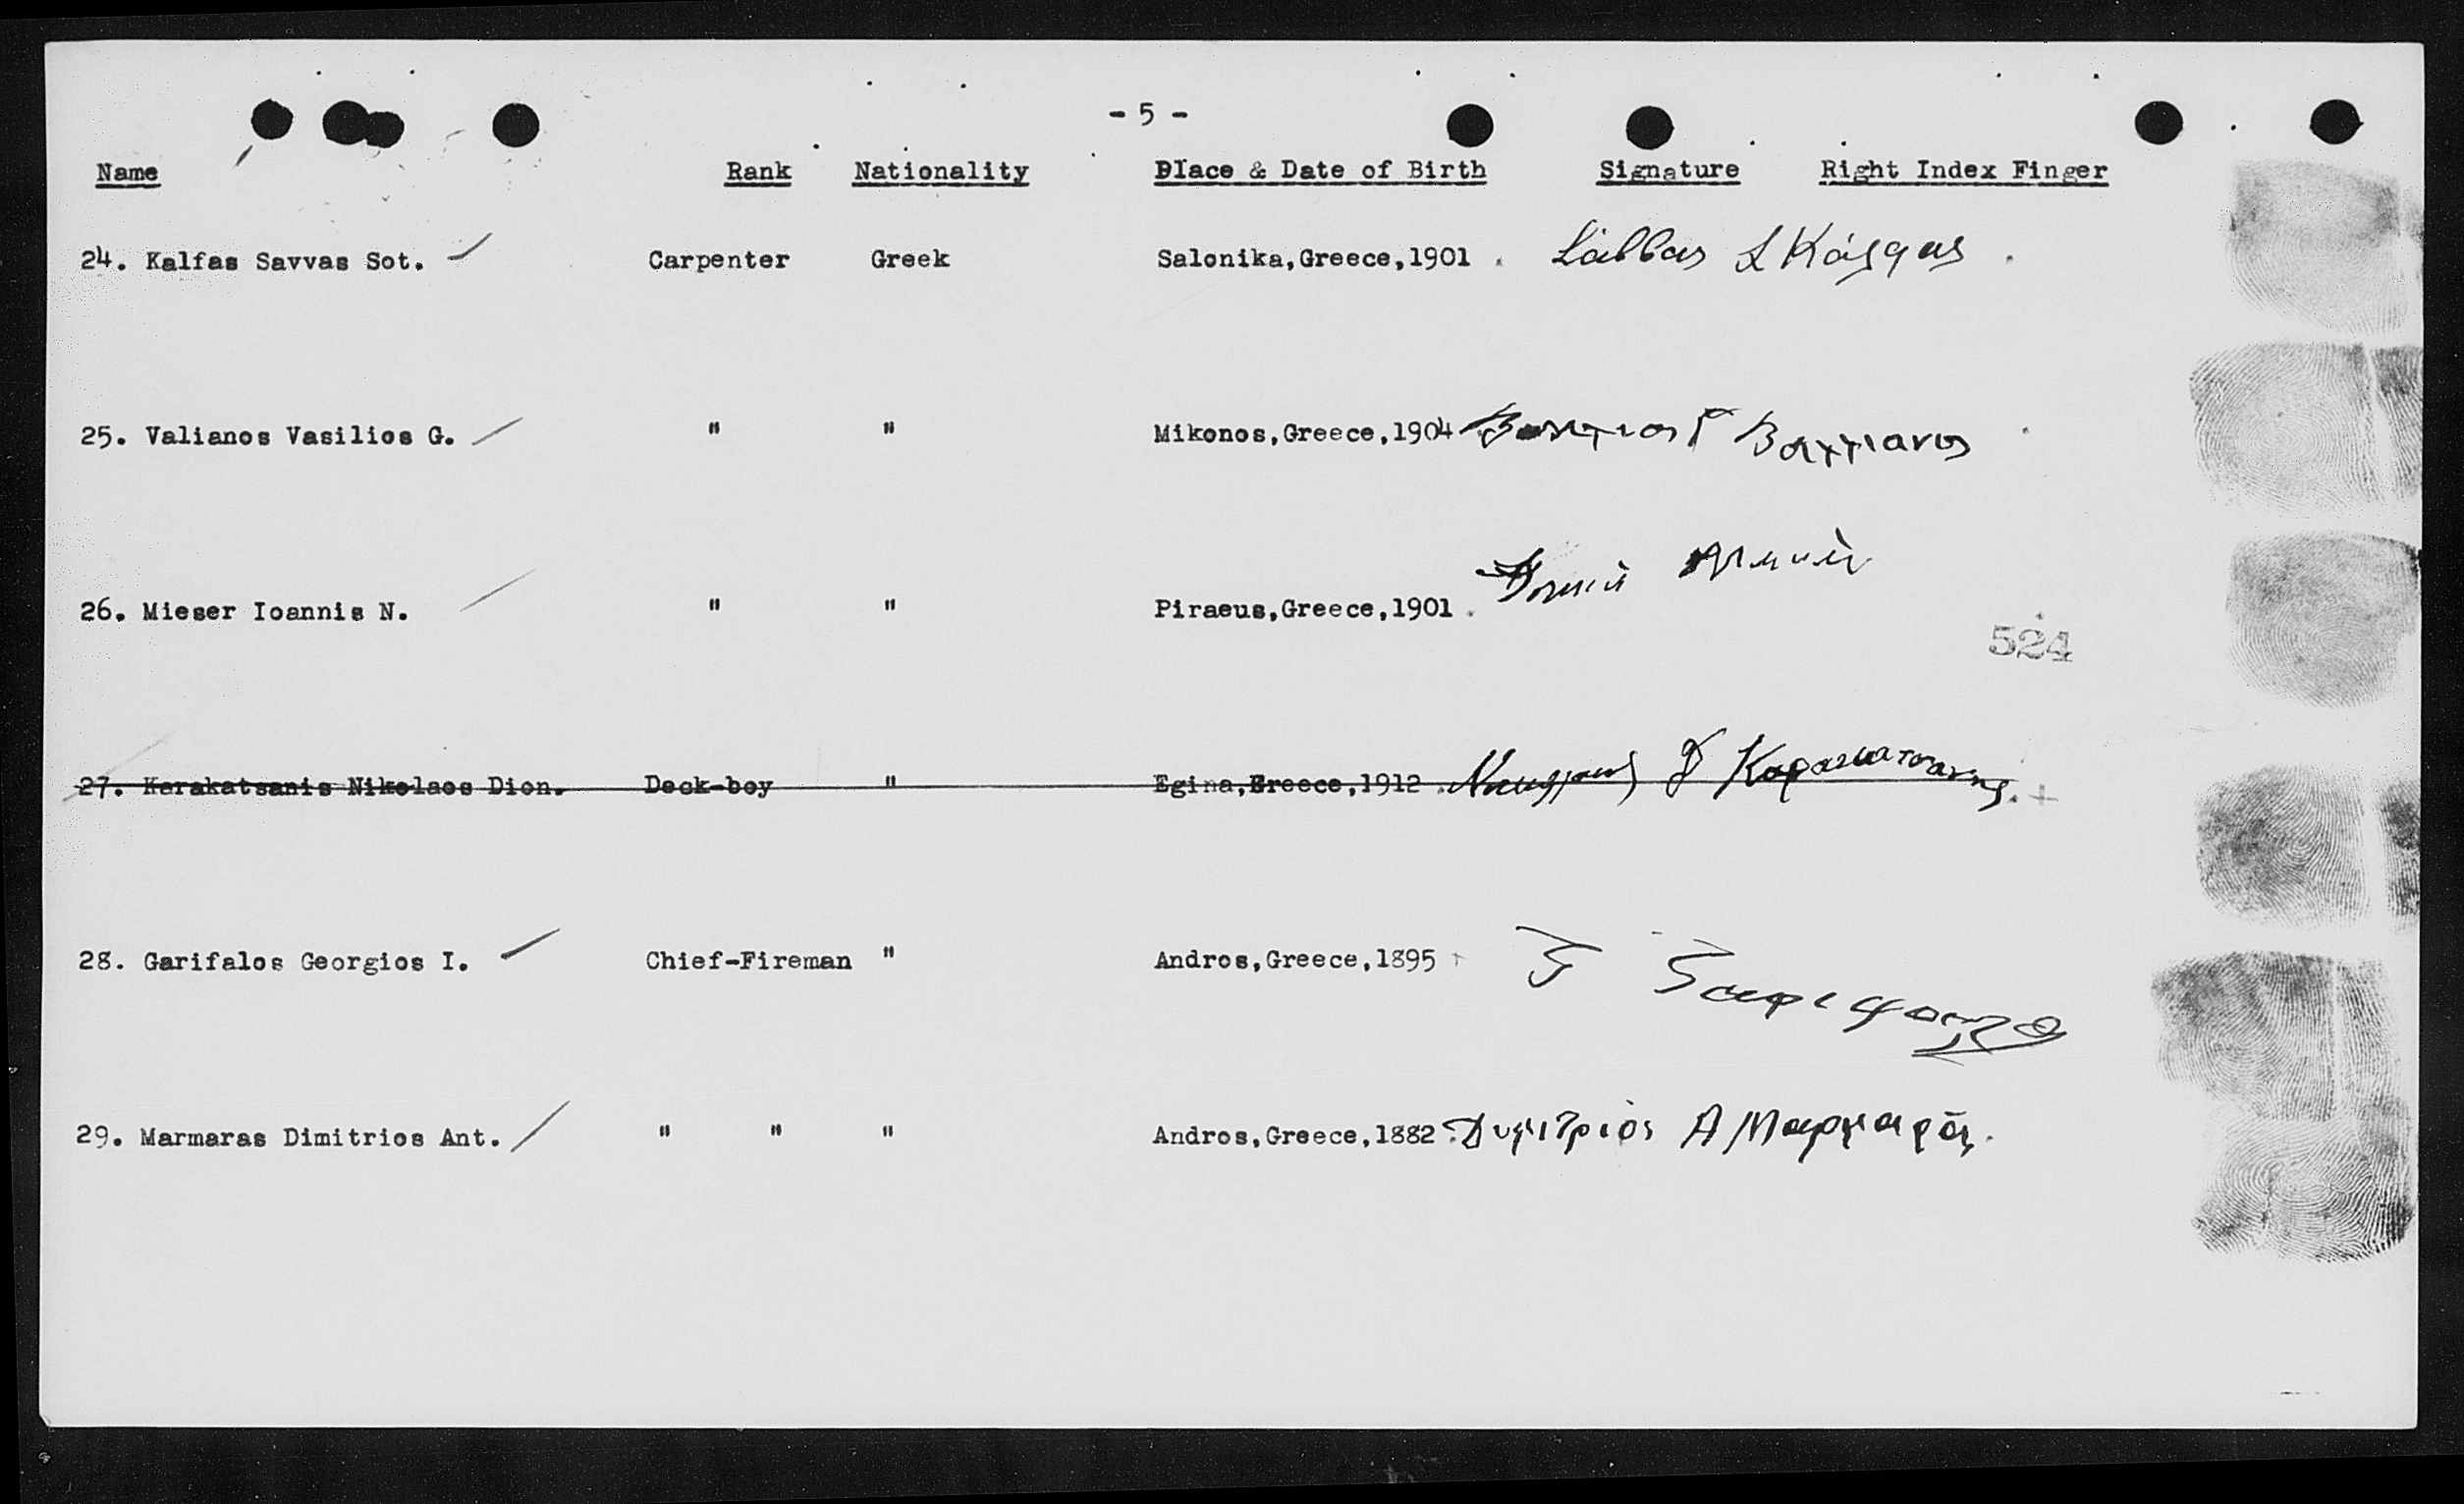 - 5 -
Name Rank Nationality Place & Date of Birth Signature Right Index Finger
24. Kalfas Savvas Sot. Carpenter Greek Salonika,Greece,1901 . Σάββας Σ Κάλφας
25. Valianos Vasilios G. " " Mikonos,Greece,1904 . Βασιλιος Γ Βαλλιανος
26. Mieser Ioannis N. " " Piraeus,Greece,1901 .
524
27. Karakatsanis Nikolaos Dion. Deck-boy " Egina,Greece,1912 . Νικολαος Δ Καρακατσανης
28. Garifalos Georgios I. Chief-Fireman " Andros,Greece,1895 Γ Γαριφαλο
29. Marmaras Dimitrios Ant. " " " Andros,Greece,1882 . Δυμιτριος Α Μαρμαρᾶς.